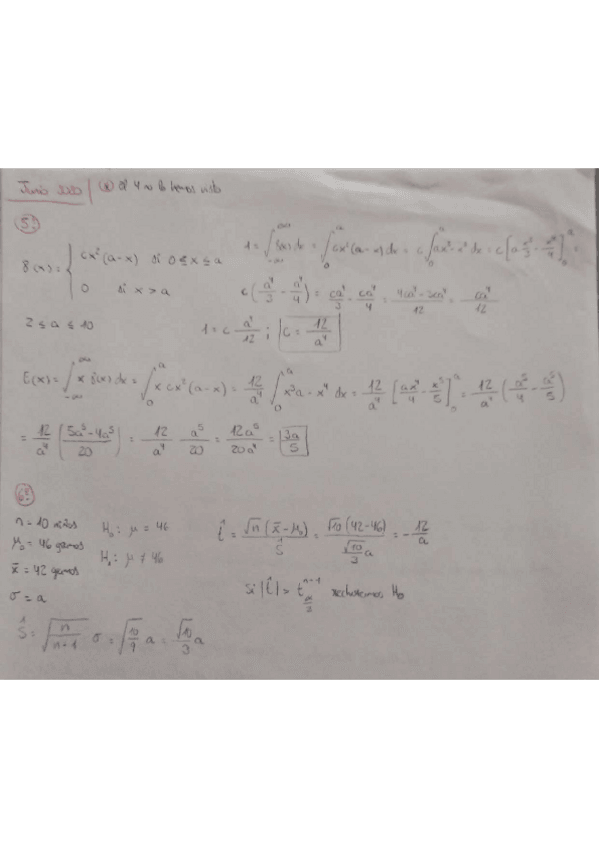 Junio 2020 | (*) el 4 no lo hemos visto
5º.
f(x) = { cx²(a-x) si 0 ≤ x ≤ a
0 si x > a
1 = ∫_{-∞}^{+∞} f(x) dx = ∫_0^a cx²(a-x) dx = c ∫_0^a ax² - x³ dx = c [a x³/3 - x⁴/4]_0^a =
c (a⁴/3 - a⁴/4) = ca⁴/3 - ca⁴/4 = (4ca⁴ - 3ca⁴)/12 = ca⁴/12
2 ≤ a ≤ 10
1 = c a⁴/12 ; c = 12/a⁴
E(x) = ∫_{-∞}^{+∞} x f(x) dx = ∫_0^a x cx²(a-x) = 12/a⁴ ∫_0^a x³a - x⁴ dx = 12/a⁴ [ax⁴/4 - x⁵/5]_0^a = 12/a⁴ (a⁵/4 - a⁵/5)
= 12/a⁴ ((5a⁵ - 4a⁵)/20) = 12/a⁴ a⁵/20 = 12a⁵/20a⁴ = 3a/5
6º.
n = 10 niños
μ₀ = 46 gramos
x̄ = 42 gramos
σ = a
Ŝ = √(n/(n-1)) σ = √(10/9) a = √10/3 a
H₀: μ = 46
H₁: μ ≠ 46
t̂ = √n (x̄ - μ₀)/Ŝ = √10 (42-46)/(√10/3 a) = - 12/a
Si |t̂| > t^{n-1}_{α/2} rechazamos H₀